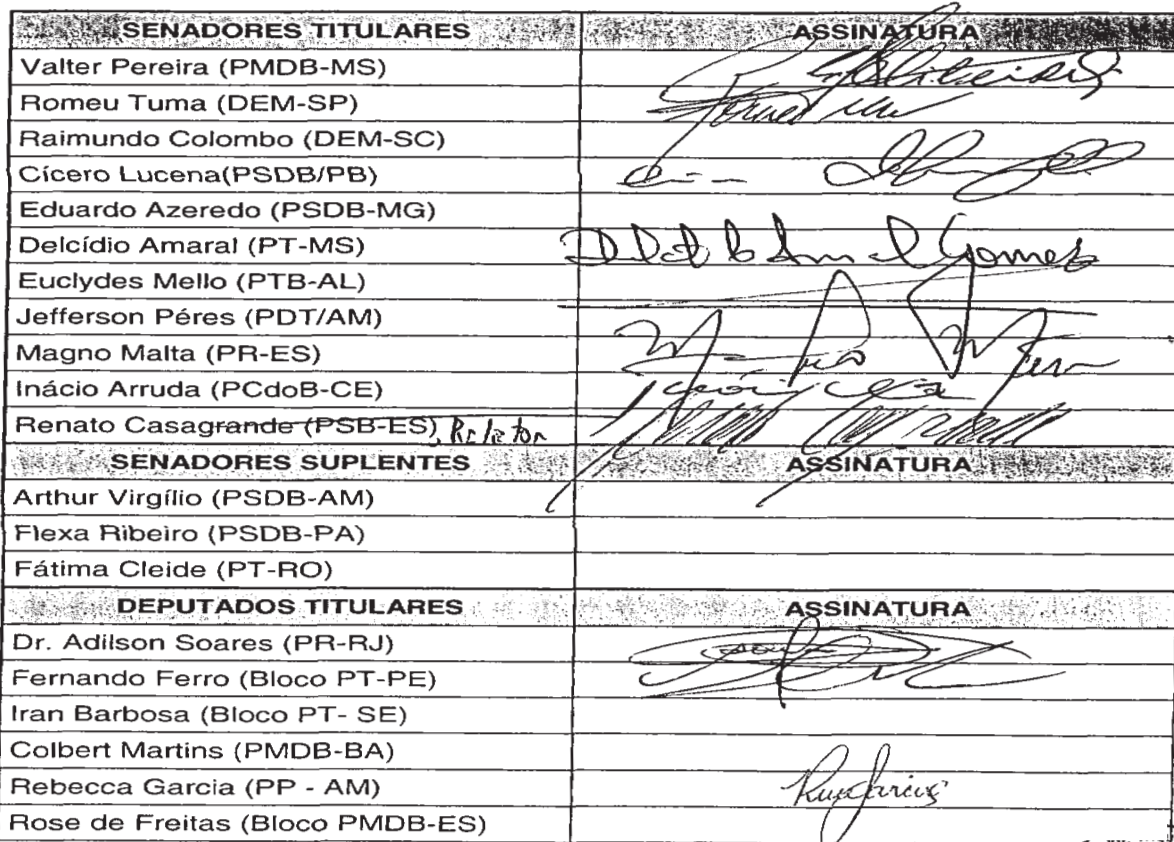 SENADORES TITULARES ASSINATURA
Valter Pereira (PMDB-MS)
Romeu Tuma (DEM-SP)
Raimundo Colombo (DEM-SC)
Cícero Lucena(PSDB/PB)
Eduardo Azeredo (PSDB-MG)
Delcídio Amaral (PT-MS) Gomez
Euclydes Mello (PTB-AL)
Jefferson Péres (PDT/AM)
Magno Malta (PR-ES)
Inácio Arruda (PCdoB-CE)
Renato Casagrande (PSB-ES), Relator
SENADORES SUPLENTES ASSINATURA
Arthur Virgílio (PSDB-AM)
Flexa Ribeiro (PSDB-PA)
Fátima Cleide (PT-RO)
DEPUTADOS TITULARES ASSINATURA
Dr. Adilson Soares (PR-RJ)
Fernando Ferro (Bloco PT-PE)
Iran Barbosa (Bloco PT- SE)
Colbert Martins (PMDB-BA)
Rebecca Garcia (PP - AM)
Rose de Freitas (Bloco PMDB-ES)